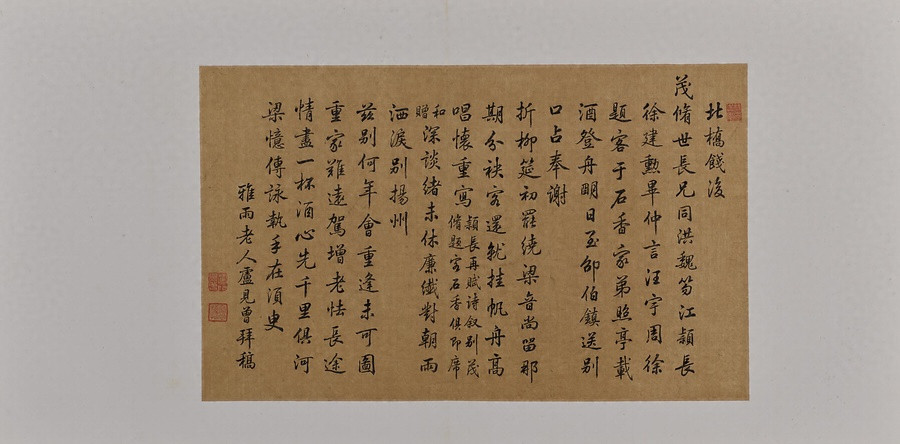 北橋餞後
茂脩世長兄同洪魏笏江穎長
徐建勲畢仲言汪宇周徐
題客于石香家弟照亭載
酒登舟明日至邵伯鎮送別
口占奉謝
折柳筵初罷繞梁音尚留那
期分袂客還就挂帆舟高
唱懷重寫穎長再賦詩叙别茂脩題客石香俱即席
和贈深談緒未休廉纖對朝雨
洒淚别揚州
玆别何年會重逢未可圖
重家難遠駕增老怯長途
情盡一杯酒心先千里俱河
梁憶傳詠執手在須臾
雅雨老人盧見曾拜稿